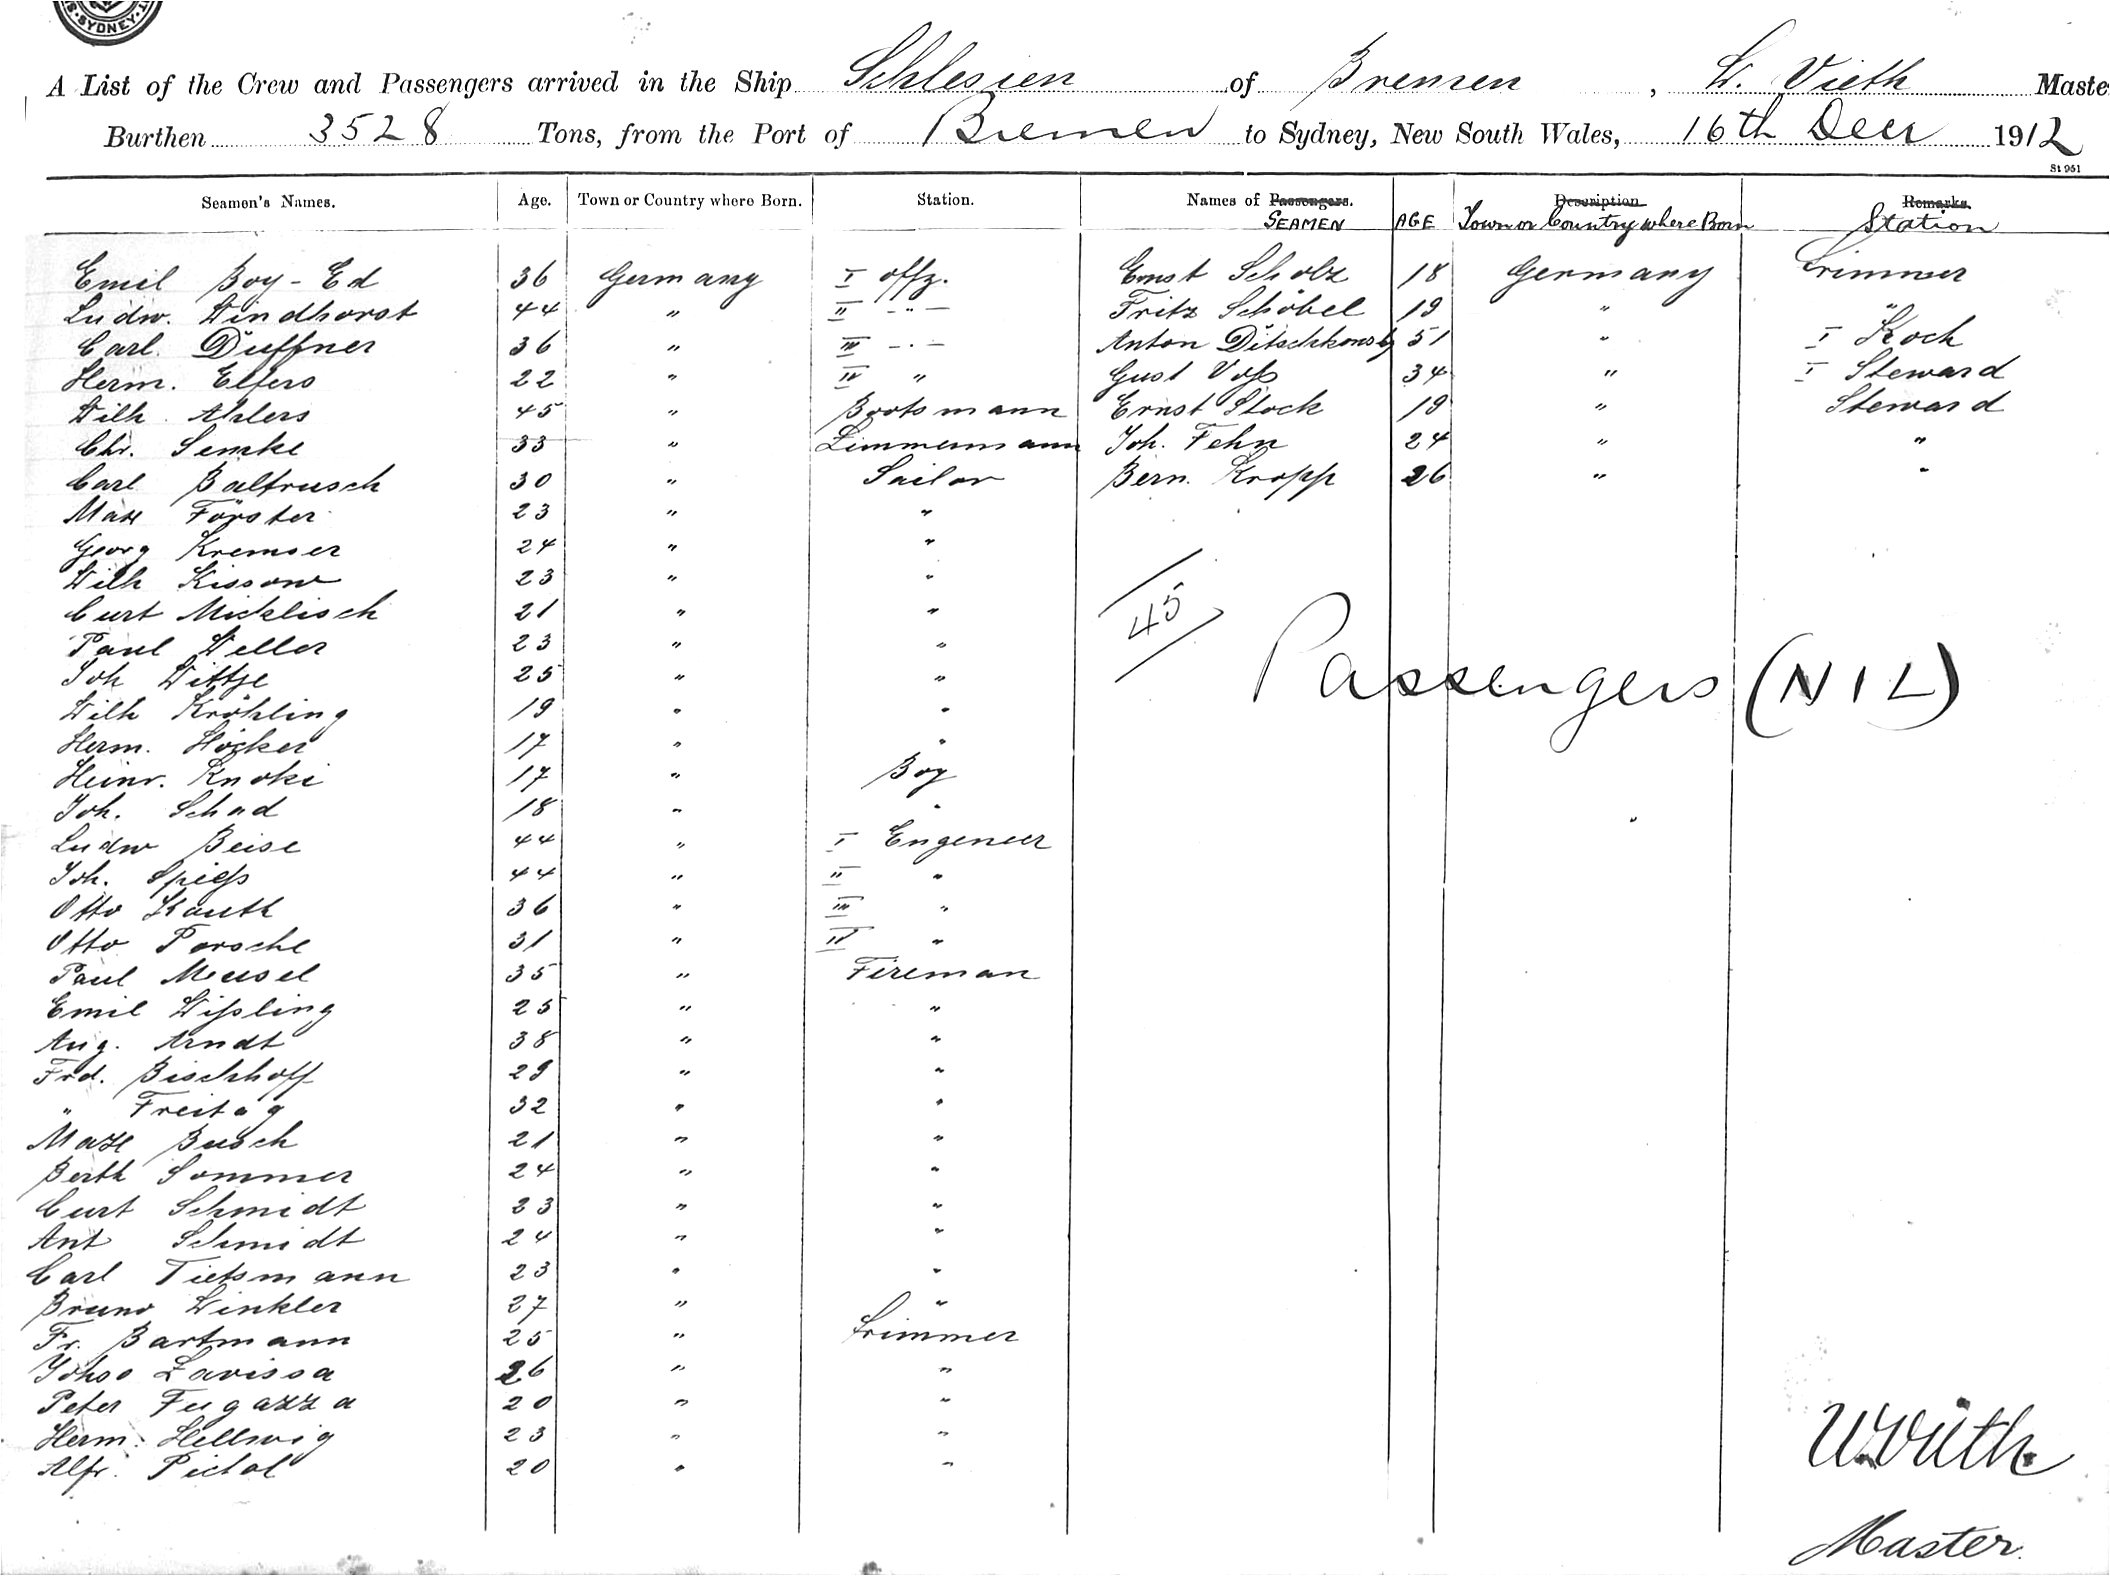 SYDNEY
A List of the Crew and Passengers arrived in the Ship Schlesien of Bremen, W. Vieth Maste
Burthen 3528 Tons, from the Port of Bremen to Sydney, New South Wales, 16th Decr 1912
St 951
Seamen's Names. Age. Town or Country where Born. Station. Names of Passengers. SEAMEN AGE Description Town or Country where Born Remarks. Station
Emil Boy-Ed 36 Germany I offz. Ernst Scholz 18 Germany Trimmer
Ludw. Windhorst 44 " II -"- Fritz Schöbel 19 " "
Carl Düffner 36 " III -"- Anton 51 " I Koch
Herm. Elfers 22 " IV " Gust Voß 34 " I Steward
Wilh. Ahlers 45 " Bootsmann Ernst Stock 19 " Steward
Chr. Semke 33 " Zimmermann Joh. Fehn 24 " "
Carl Baltrusch 30 " Sailor Bern. Kropp 26 " "
Max Förster 23 " "
Georg Kremser 24 " "
Wilh Kissow 23 " "
Curt Micklisch 21 " "
Paul Weller 23 " "
Joh Wittje 25 " "
Wilh Kröhling 19 " "
Herm. Höcker 17 " "
Heinr. Knoke 17 " Boy
Joh. Schad 18 " "
Ludw Beise 44 " I Engeneer
Joh. Spieß 44 " II "
Otto Kauth 36 " III "
Otto Porsche 31 " IV "
Paul Meusel 35 " Fireman
Emil Wißling 25 " "
Aug. Arndt 38 " "
Frd. Bischhoff 29 " "
" Freitag 32 " "
Max Busch 21 " "
Berth Sommer 24 " "
Curt Schmidt 23 " "
Ant Schmidt 24 " "
Carl Tietsmann 23 " "
Bruno Winkler 27 " "
Fr. Bartmann 25 " Trimmer
Lavissa 26 " "
Peter Fugazza 20 " "
Herm. Hellwig 23 " "
Alfr. Pietol 20 " "
45
Passengers (NIL)
W. Vieth
Master.